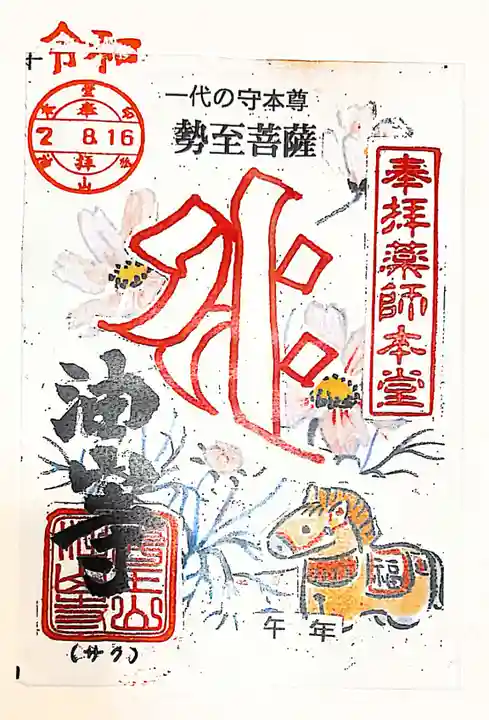 令和
2 8.16
奉拝
山
一代の守本尊
勢至菩薩
奉拝薬師本堂
油山寺
福
午年
(サク)